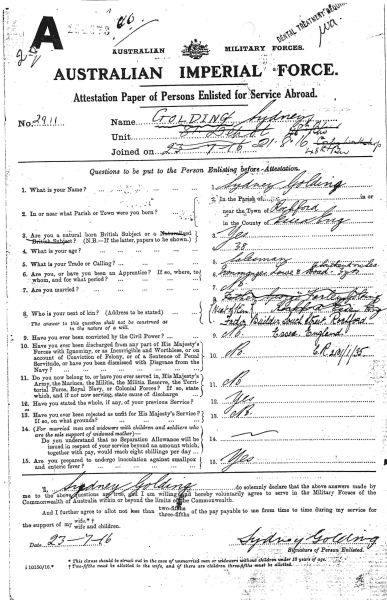 A
DENTAL TREATMENT
AUSTRALIAN MILITARY FORCES.
AUSTRALIAN IMPERIAL FORCE.
Attestation Paper of Persons Enlisted for Service Abroad.
No. 2911
Name GOLDING Sydney
Unit
Joined on 23-7-16
Questions to be put to the Person Enlisting before Attestation.
1. What is your Name?
1. Sydney Golding
2. In or near what Parish or Town were you born?
2. In the Parish of in or
near the Town of Rochford
in the County of Essex Eng
3. Are you a natural born British Subject or a Naturalized
British Subject? (N.B.—If the latter, papers to be shown.)
3. Yes
4. What is your age?
4. 38
5. What is your Trade or Calling?
5. Salesman
6. Are you, or have you been an Apprentice? If so, where, to
whom, and for what period?
7. Are you married?
7. No
8. Who is your next of kin? (Address to be stated)
The answer to this question shall not be construed as
in the nature of a will.
Essex England.
9. Have you ever been convicted by the Civil Power?
9. No
10. Have you ever been discharged from any part of His Majesty's
Forces with Ignominy, or as Incorrigible and Worthless, or on
account of Conviction of Felony, or of a Sentence of Penal
Servitude, or have you been dismissed with Disgrace from the
Navy?
10. No
11. Do you now belong to, or have you ever served in, His Majesty's
Army, the Marines, the Militia, the Militia Reserve, the Terri-
torial Force, Royal Navy, or Colonial Forces? If so, state
which, and if not now serving, state cause of discharge
11. No
12. Have you stated the whole, if any, of your previous Service?
12. Yes
13. Have you ever been rejected as unfit for His Majesty's Service?
If so, on what grounds?
13. No
14. (For married men and widowers with children and soldiers who
are the sole support of widowed mother)—
Do you understand that no Separation Allowance will be
issued in respect of your service beyond an amount which,
together with pay, would reach eight shillings per day?
14.
15. Are you prepared to undergo inoculation against smallpox
and enteric fever?
15. Yes
I, Sydney Golding do solemnly declare that the above answers made
by me to the above questions are true, and I am willing and hereby voluntarily agree to serve in the Military Forces of the
Commonwealth of Australia within or beyond the limits of the Commonwealth.
And I further agree to allot not less than two-fifths
three-fifths of the pay payable to me from time to time during my service for
the support of my wife.*†
wife and children.
Date 23-7-16
Sydney Golding
Signature of Person Enlisted.
* This clause should be struck out in the case of unmarried men or widowers without children under 18 years of age.
† Two-fifths must be allotted to the wife, and if there are children three-fifths must be allotted.